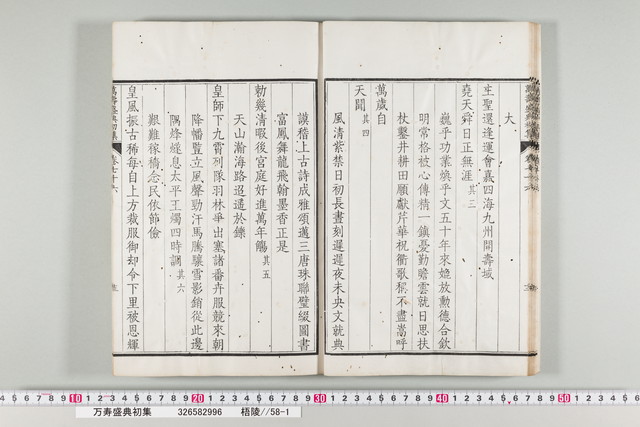 大
生聖還逢運會嘉四海九州開壽域
堯天舜日正無涯其三
巍乎功業煥乎文五十年來媲放勲德合欽
明常格被心傳精一鎮憂勤瞻雲就日思扶
杖鑿井耕田願獻芹華祝衢歌稱不盡嵩呼
萬歲自
天聞其四
風清紫禁日初長晝刻遲遲夜未央文就典
謨稽上古詩成雅頌邁三唐珠聯璧綴圖書
富鳳舞龍飛翰墨香正是
勅幾清暇後宮庭好進萬年觴其五
天山瀚海路迢遥於鑠
皇師下九霄列隊羽林爭出塞諸番卉服競來朝
降幡豎立風聲勁汗馬騰驤雪影銷從此邊
隅烽燧息太平玉燭四時調其六
艱難稼穡念民依節儉
皇風振古稀每自上方裁服御却令下里被恩輝
萬壽盛典初集
卷七十六
10 20 30 40 50
万寿盛典初集 326582996 梧陵//58-1